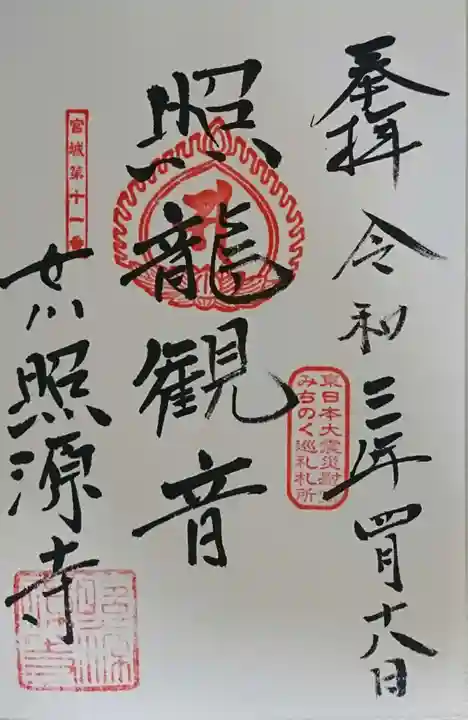 奉拝
令和三年四月十八日
東日本大震災慰
みちのく巡礼札所
照龍観音
宮城第十一番
女川
照源寺